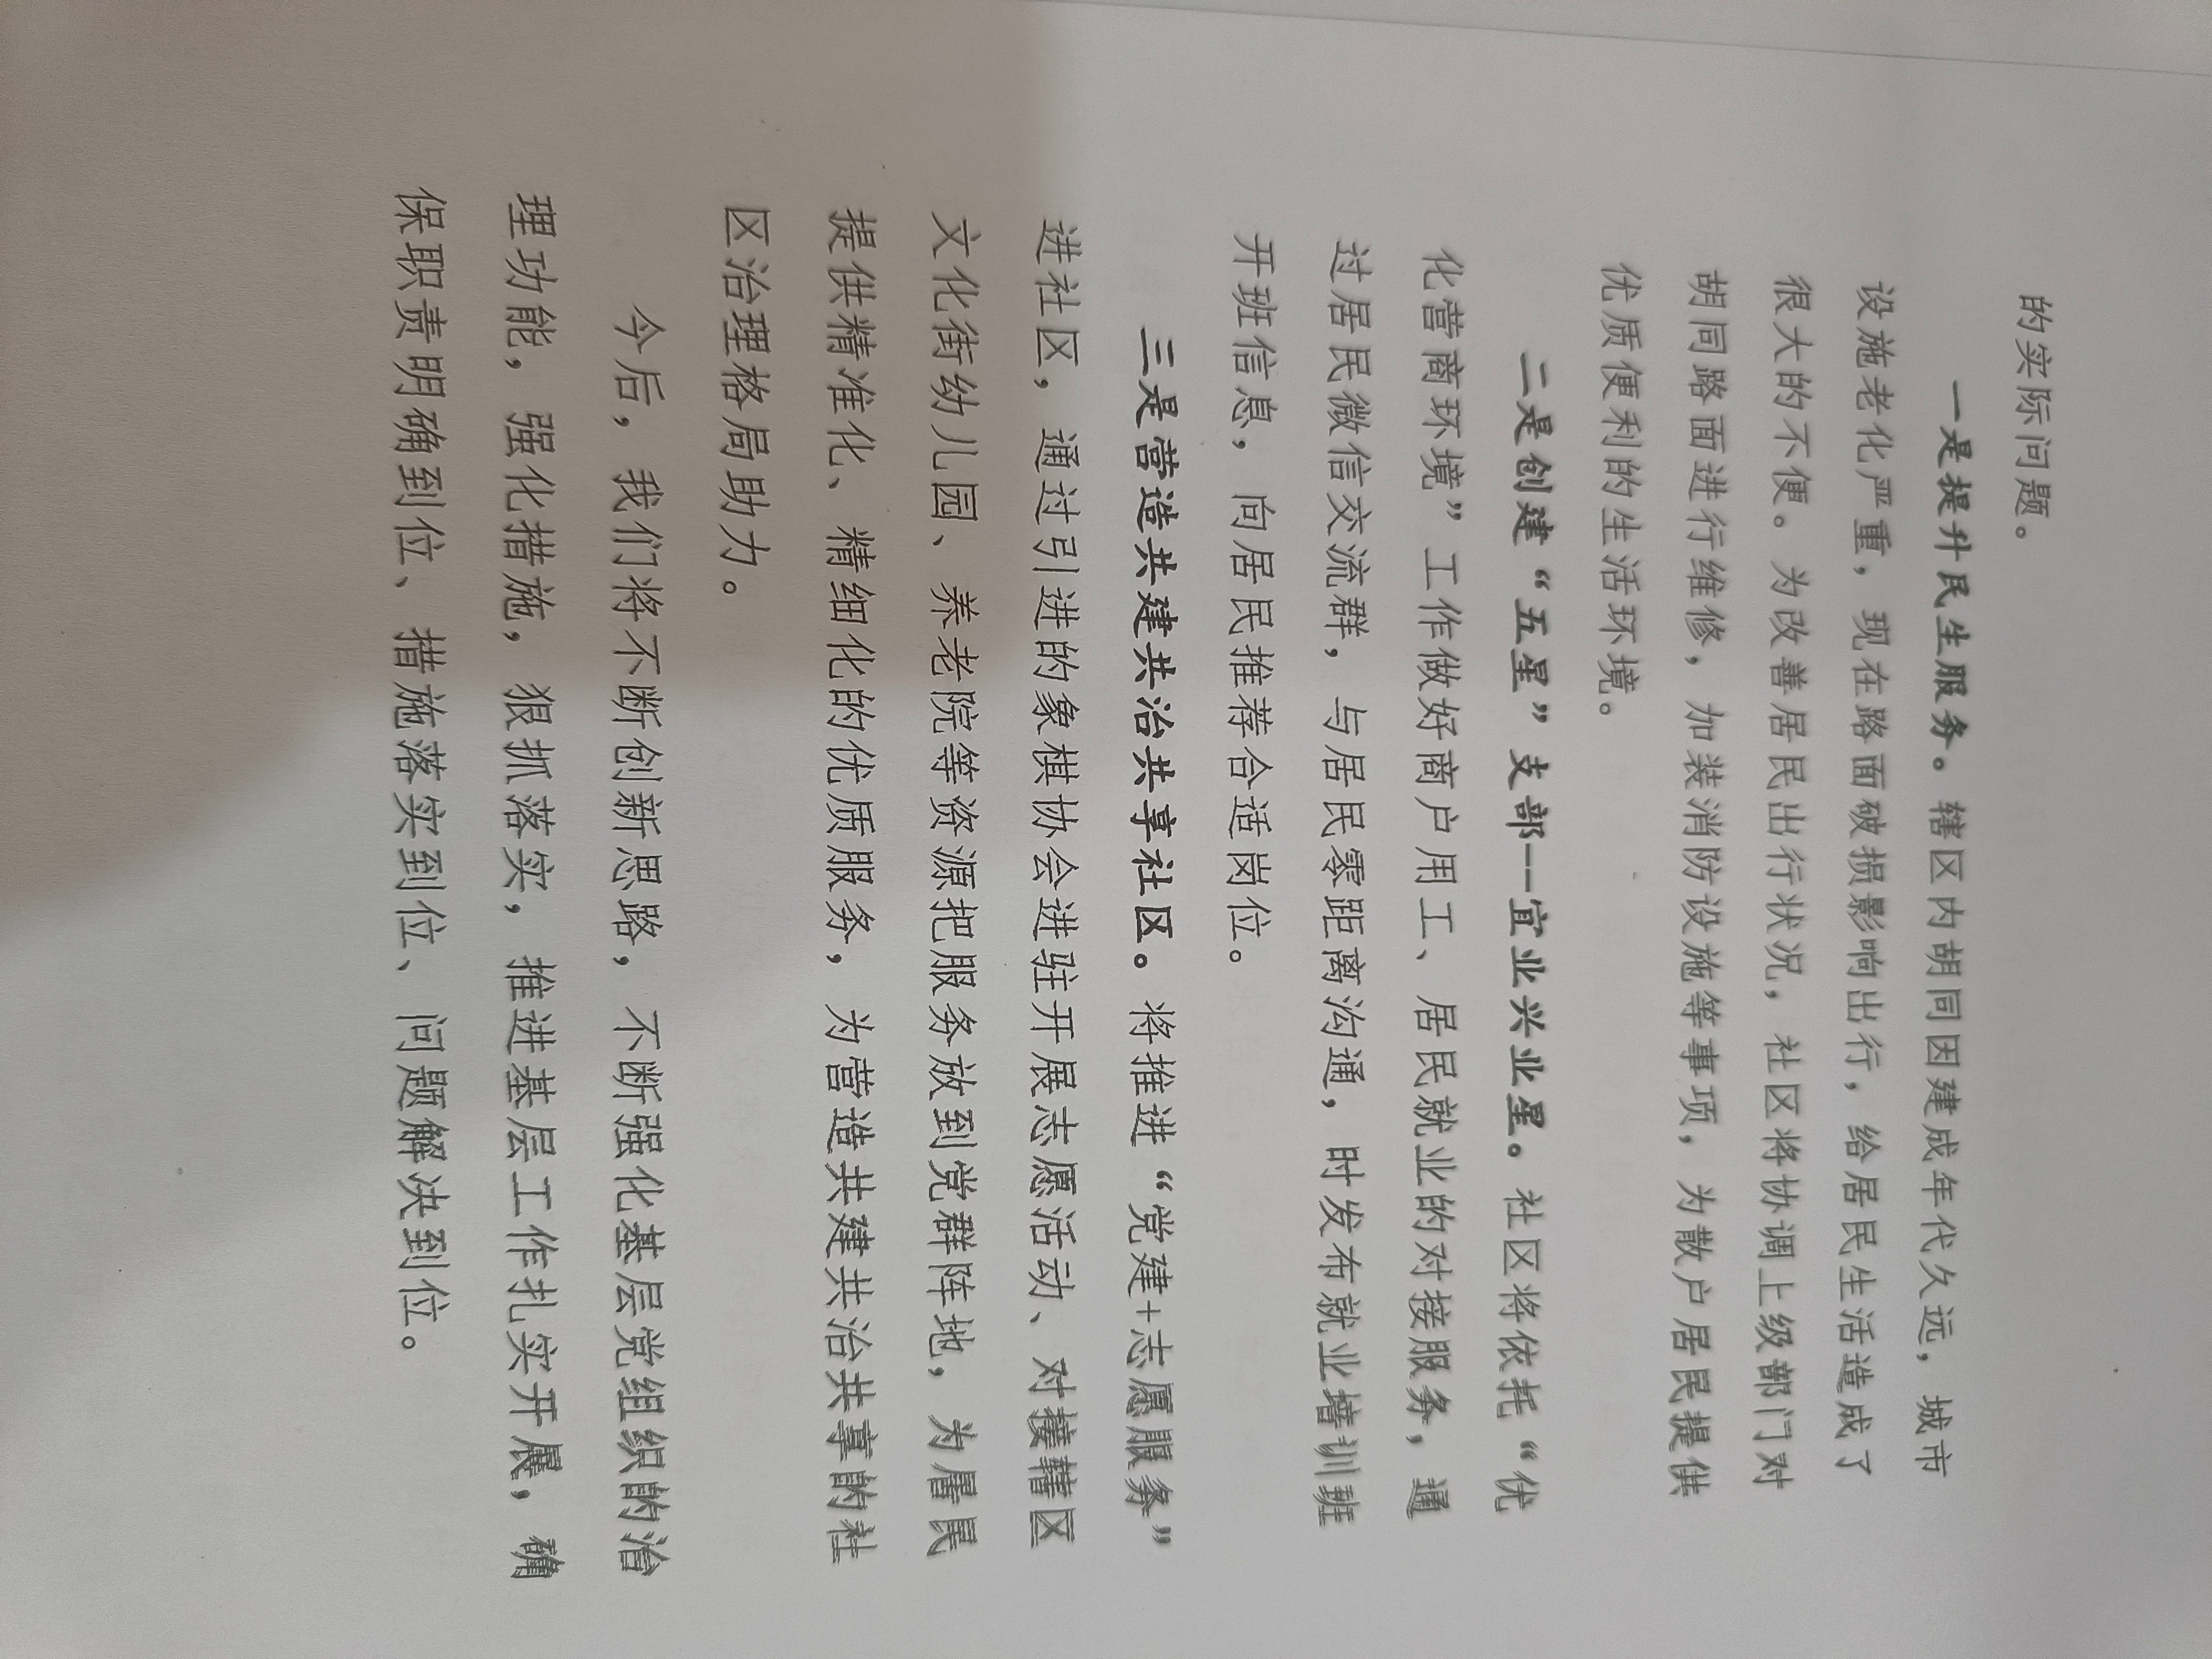 的实际问题。
一是提升民生服务。辖区内胡同因建成年代久远，城市
设施老化严重，现在路面破损影响出行，给居民生活造成了
很大的不便。为改善居民出行状况，社区将协调上级部门对
胡同路面进行维修，加装消防设施等事项，为散户居民提供
优质便利的生活环境。
二是创建“五星”支部——宜业兴业星。社区将依托“优
化营商环境”工作做好商户用工、居民就业的对接服务，通
过居民微信交流群，与居民零距离沟通，时发布就业培训班
开班信息，向居民推荐合适岗位。
三是营造共建共治共享社区。将推进“党建+志愿服务”
进社区，通过引进的象棋协会进驻开展志愿活动、对接辖区
文化街幼儿园、养老院等资源把服务放到党群阵地，为居民
提供精准化、精细化的优质服务，为营造共建共治共享的社
区治理格局助力。
今后，我们将不断创新思路，不断强化基层党组织的治
理功能，强化措施，狠抓落实，推进基层工作扎实开展，确
保职责明确到位、措施落实到位、问题解决到位。